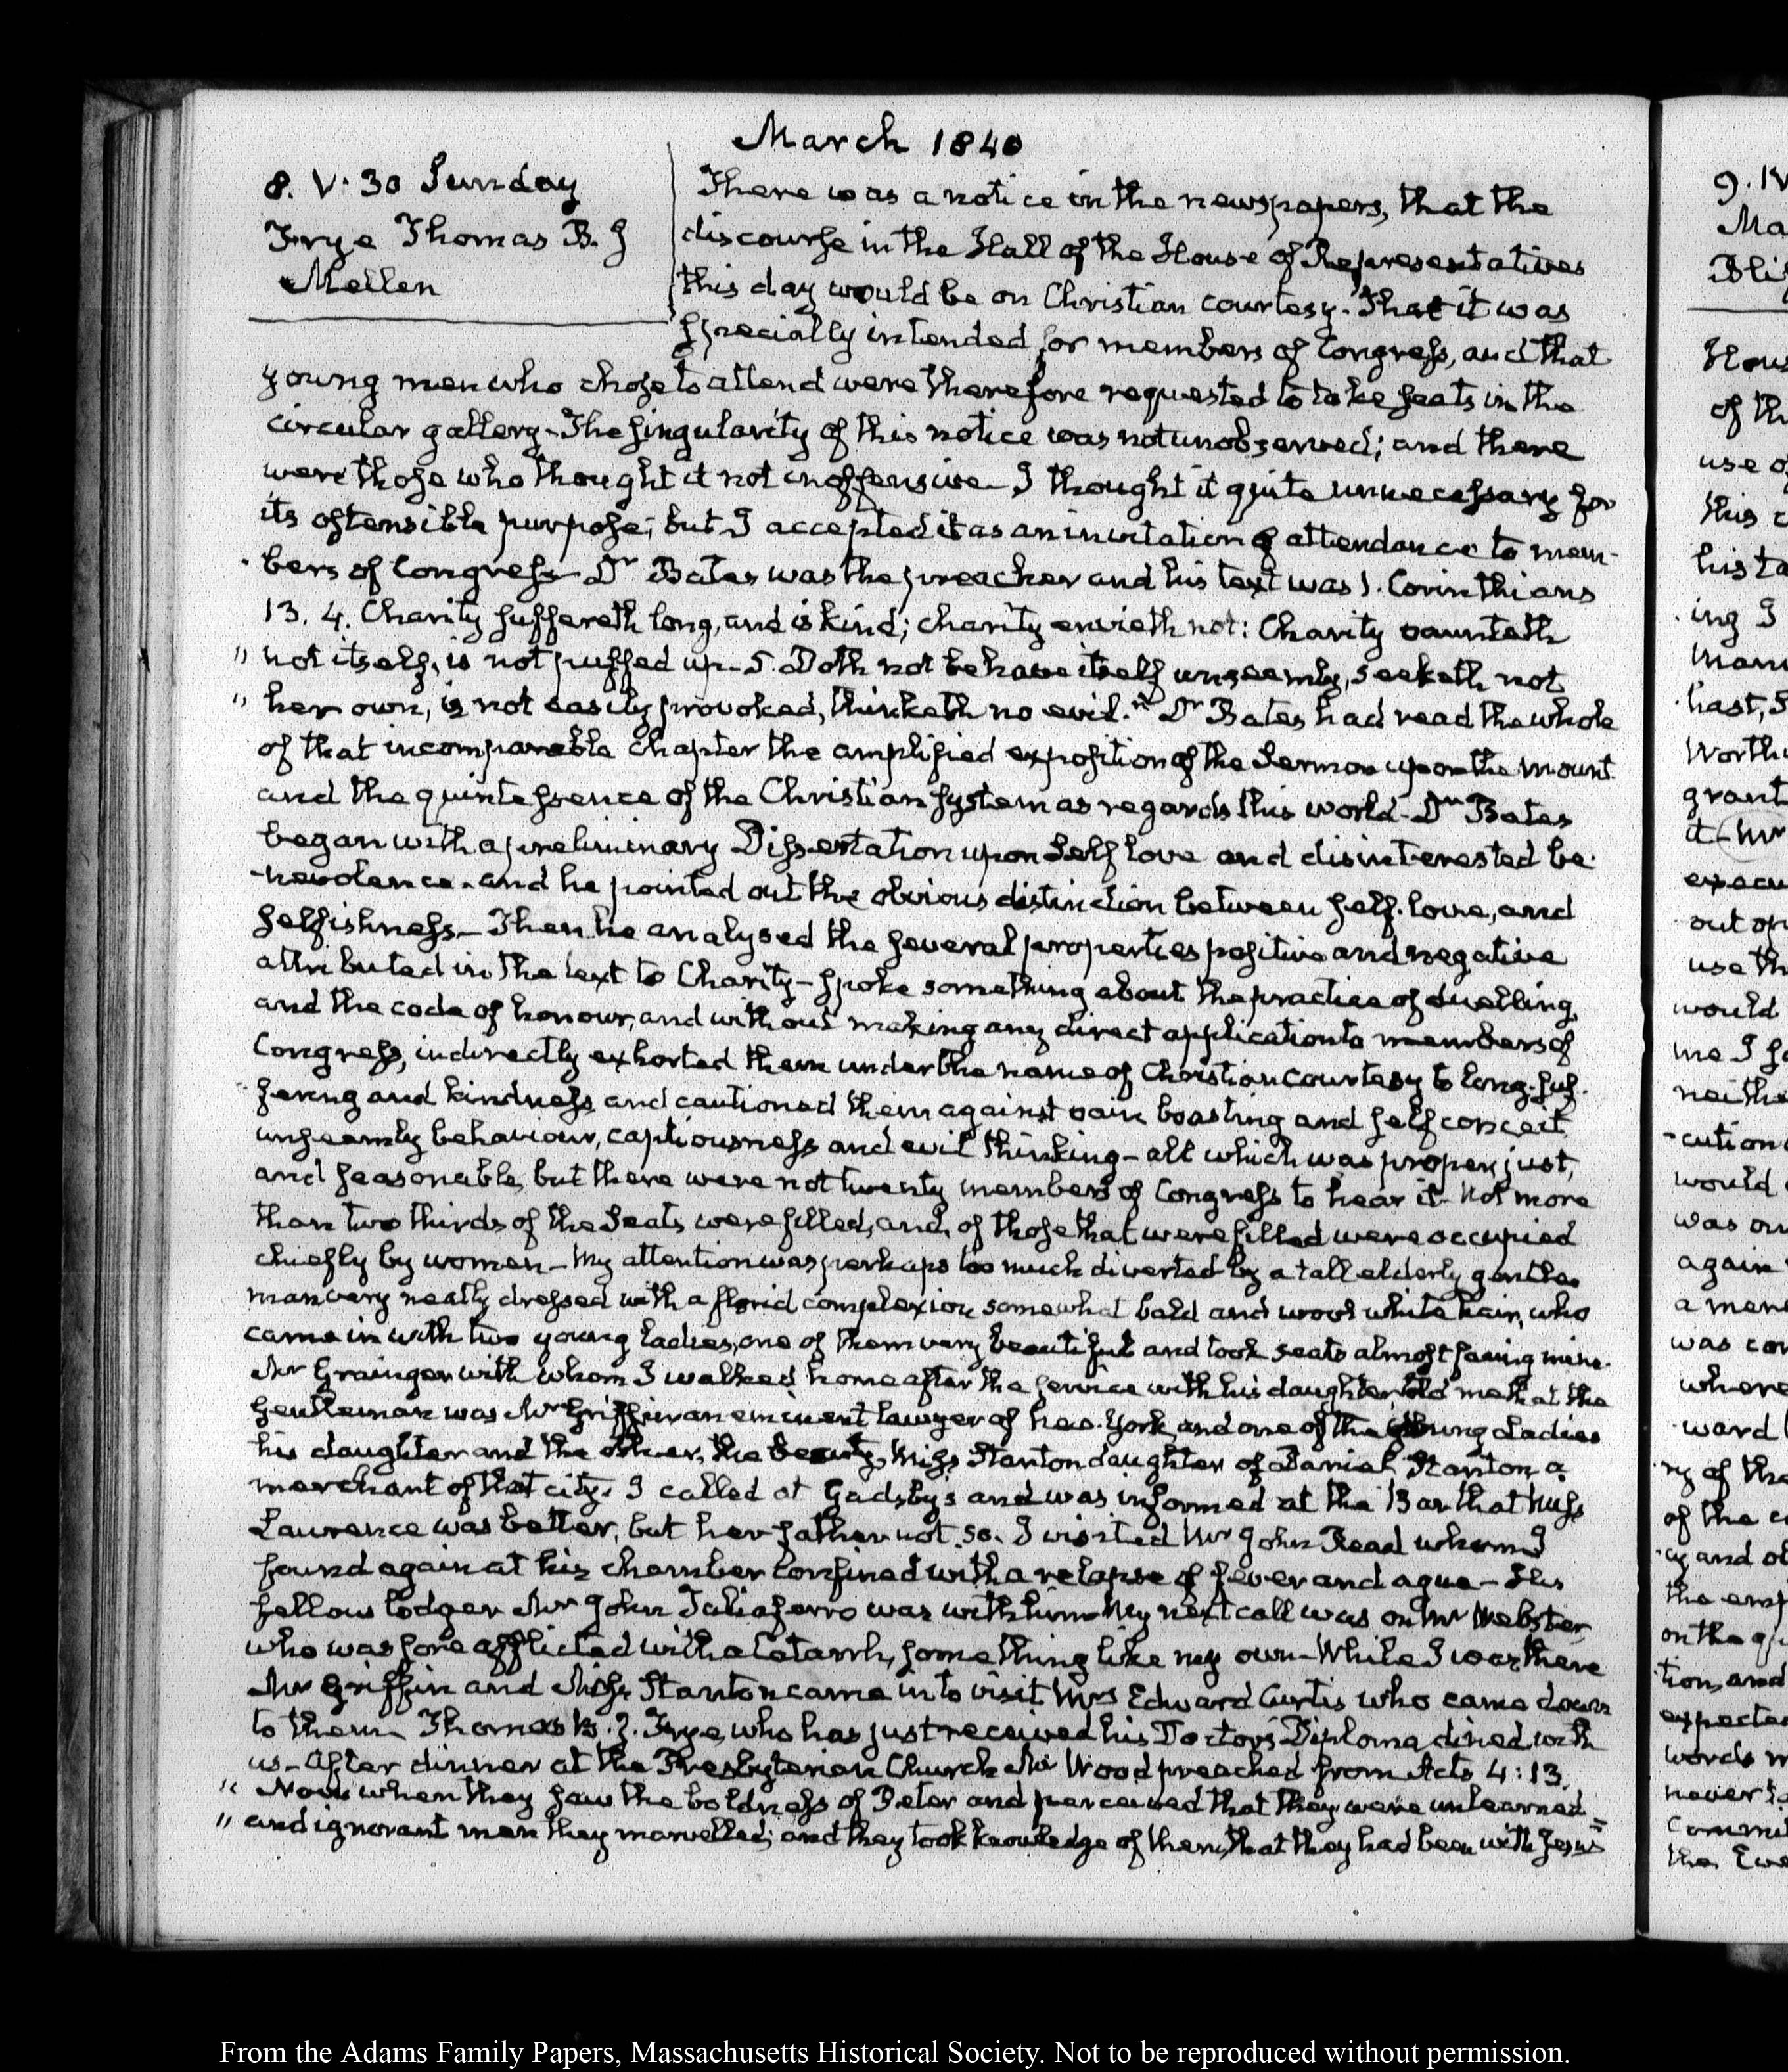 March 1840
8. V. 30 Sunday
Frye Thomas B. J
Mellen
There was a notice in the newspapers, that the
discourse in the Hall of the House of Representatives
this day would be on Christian courtesy. That it was
specially intended for members of Congress, and that
young men who chose to attend were therefore requested to take seats in the
circular gallery. The singularity of this notice was not unobserved; and there
were those who thought it not inoffensive. I thought it quite unnecessary for
its ostensible purpose; but I accepted it as an invitation of attendance to mem-
bers of Congress. Dr Bates was the preacher and his text was 1. Corinthians
13. 4. Charity suffereth long, and is kind; charity envieth not: Charity vaunteth
" not itself, is not puffed up. 5. Doth not behave itself unseemly, seeketh not
" her own, is not easily provoked, thinketh no evil." Dr Bates had read the whole
of that incomparable chapter the amplified exposition of the Sermon upon the mount
and the quintessence of the Christian system as regards this world. Dr Bates
began with a preliminary Dissertation upon Self love and disinterested be-
-nevolence. and he pointed out the obvious distinction between self-love, and
selfishness. Then he analysed the several properties positive and negative
attributed in the text to Charity - spoke something about the practice of duelling,
and the code of honour, and without making any direct application to members of
Congress, indirectly exhorted them under the name of Christian courtesy to long-suf-
fering and kindness and cautioned them against vain boasting and self conceit
unseemly behaviour, captiousness and evil thinking - all which was proper, just,
and seasonable, but there were not twenty members of Congress to hear it. Not more
than two thirds of the Seats were filled, and, of those that were filled were occupied
chiefly by women - My attention was perhaps too much diverted by a tall elderly gentle-
man very neatly dressed with a florid complexion somewhat bald and wool white hair, who
came in with two young ladies, one of them very beautiful and took seats almost facing mine.
Mr Grainger with whom I walked home after the service with his daughter, told me that the
gentleman was Mr Griffin an eminent lawyer of New-York, and one of the young Ladies
his daughter and the other, the beauty, Miss Stanton daughter of Daniel Stanton a
merchant of that city. I called at Gadsby's and was informed at the Bar that Miss
Lawrence was better, but her father not so. I visited Mr John Read whom I
found again at his chamber confined with a relapse of fever and ague - His
fellow lodger Mr John Taliaferro was with him. My next call was on Mr Webster
who was sore afflicted with a Catarrh, something like my own - While I was there
Mr Griffin and Miss Stanton came in to visit Mrs Edward Curtis who came down
to them. Thomas B. J. Frye, who has just received his Doctors Diploma, dined with
us - After dinner at the Presbyterian Church Mr Wood preached from Acts 4:13.
" Now when they saw the boldness of Peter and perceived that they were unlearned
" and ignorant men they marvelled; and they took knowledge of them, that they had been with Jesus"
9. IV
Ma
Bli
Hous
of th
use o
this c
his ta
ing I
man
hast, S
Worth
grant
it - Mr
execu
out of
use th
would
me I
neithe
-cution
would
was
again
a mem
was con
where
ward
of the
of the
and
the
on the
tion, and
expected
words
never
Commi
the
From the Adams Family Papers, Massachusetts Historical Society. Not to be reproduced without permission.